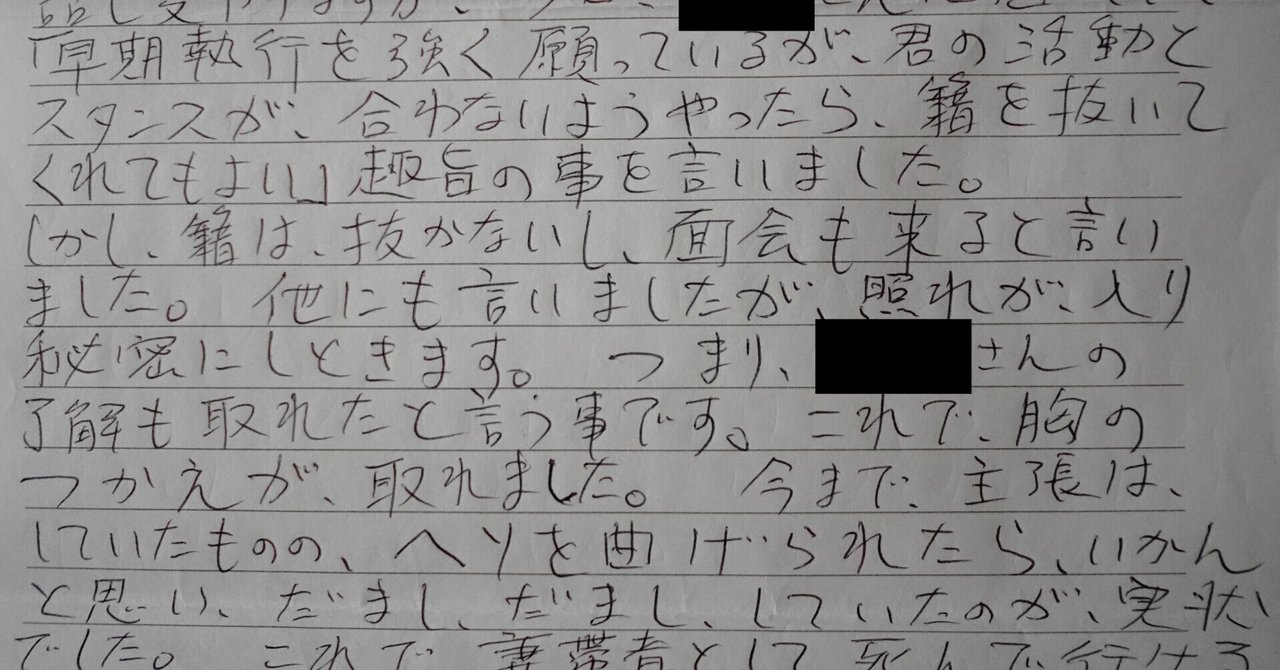 「早期執行を強く願っているが、君の活動と
スタンスが、合わないようやったら、籍を抜いて
くれてもよいし」趣旨の事を言いました。
しかし、籍は、抜かないし、面会も来ると言い
ました。 他にも言いましたが、照れが、入り
秘密にしときます。 つまり、 さんの
了解も取れたと言う事です。これで、胸の
つかえが、取れました。 今まで、主張は、
していたものの、ヘソを曲げられたら、いかん
と思い、だまし、だまし、していたのが、実状
でした。 これで、妻帯者として死んで行ける